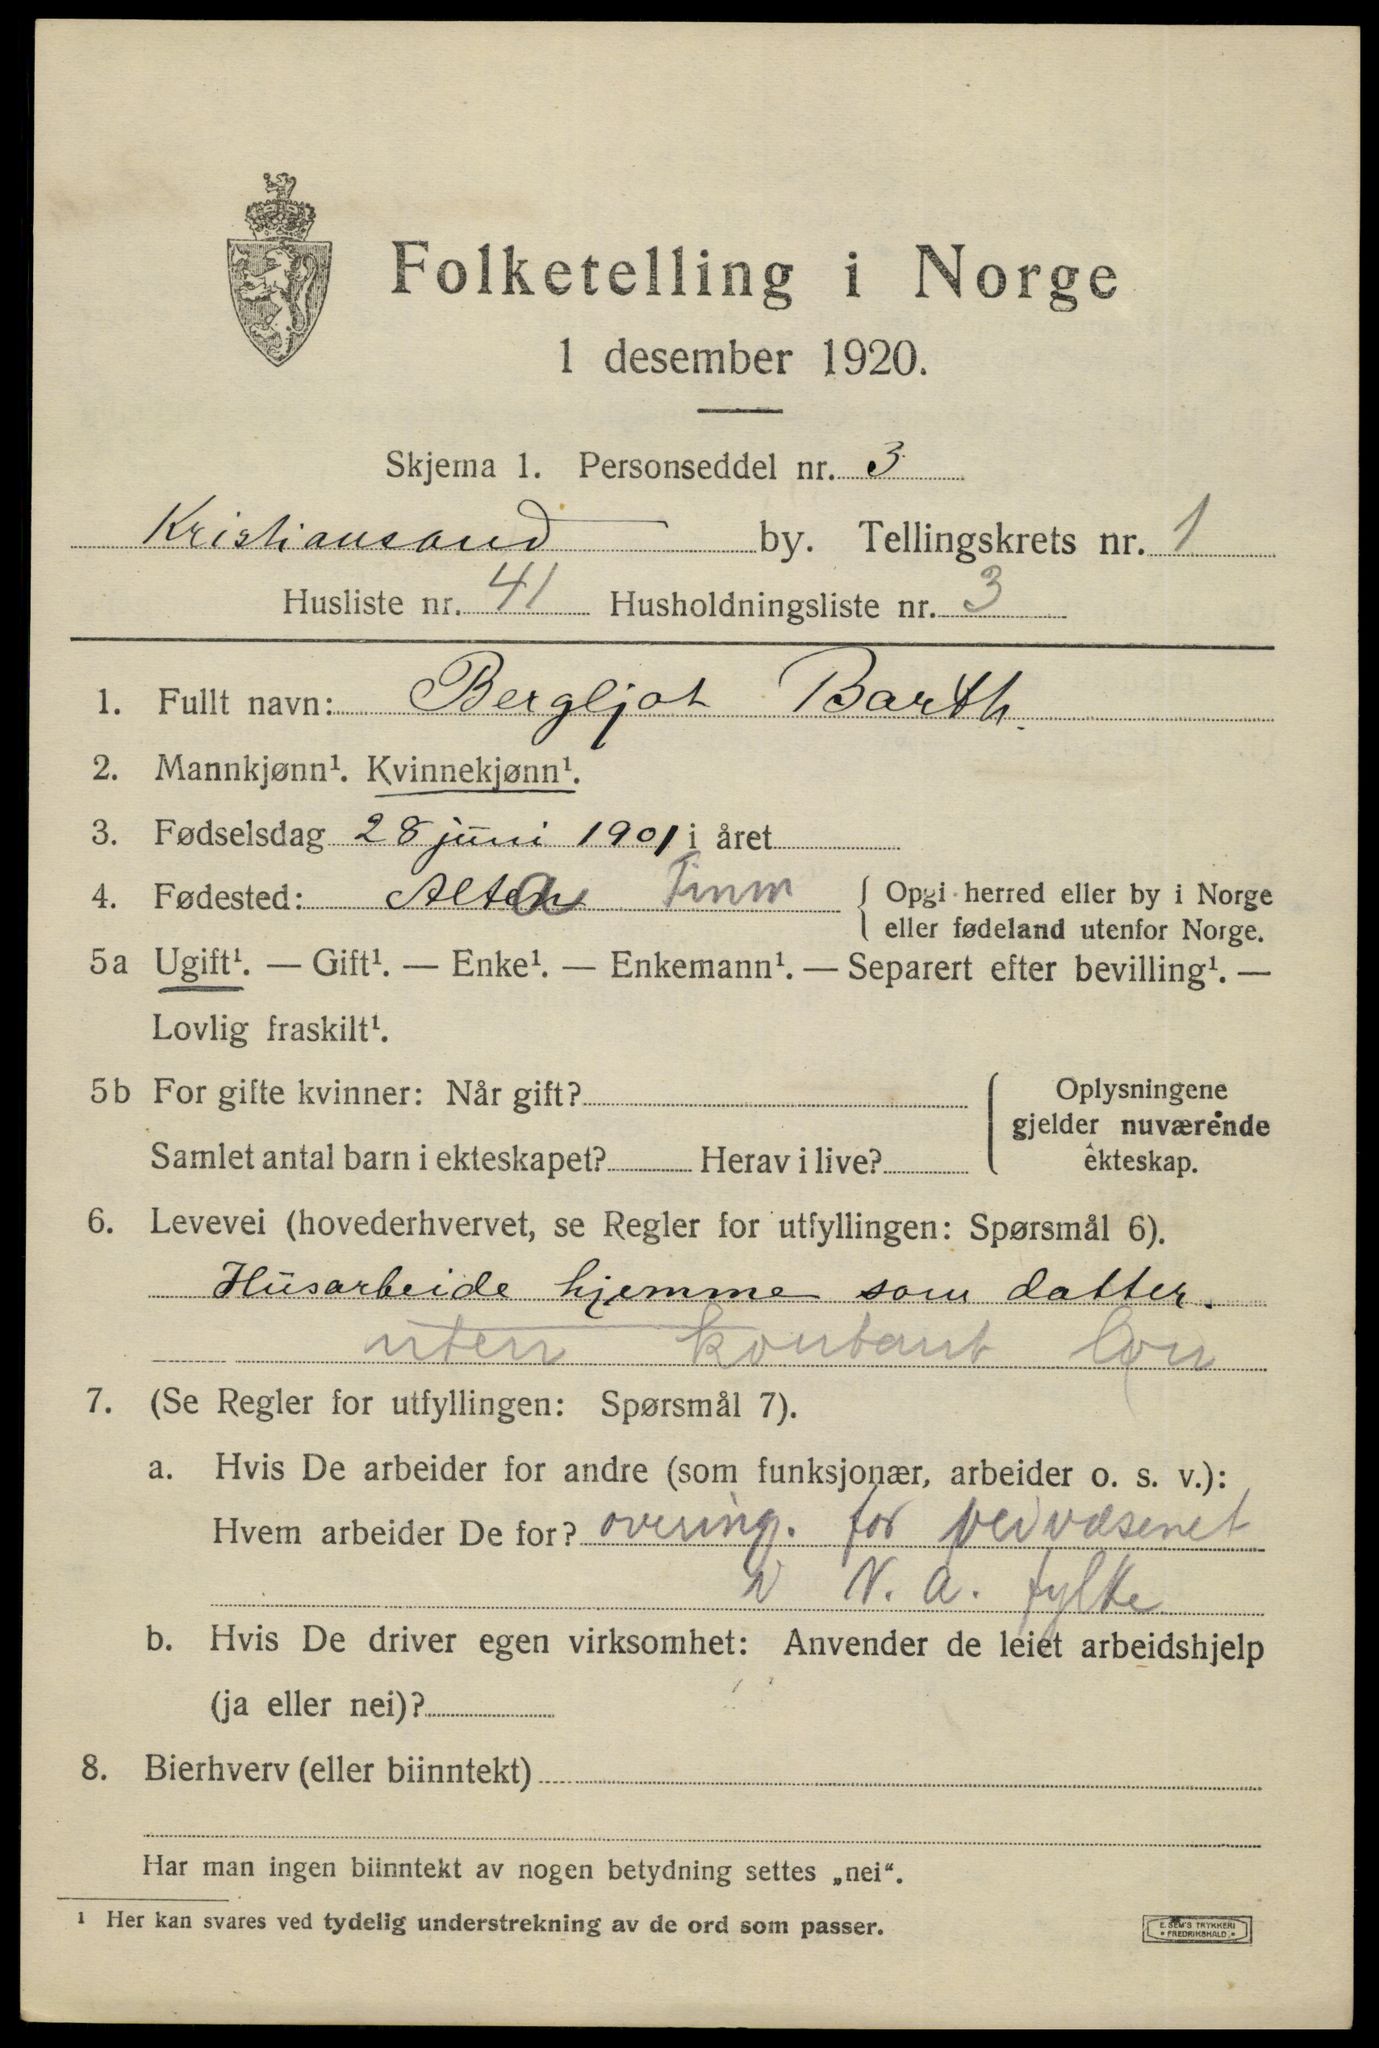 Folketelling i Norge
1 desember 1920.
Skjema 1. Personseddel nr. 3
Kristiansand by. Tellingskrets nr. 1
Husliste nr. 41 Husholdningsliste nr. 3
1. Fullt navn: Bergljot Barth.
2. Mannkjønn¹. Kvinnekjønn¹.
3. Fødselsdag 28 juni 1901 i året
4. Fødested: Alta Finm { Opgi herred eller by i Norge
eller fødeland utenfor Norge.
5a Ugift¹. — Gift¹. — Enke¹. — Enkemann¹. — Separert efter bevilling¹. —
Lovlig fraskilt¹.
5b For gifte kvinner: Når gift?
Samlet antal barn i ekteskapet? Herav i live?
Oplysningene
gjelder nuværende
ekteskap.
6. Levevei (hovederhvervet, se Regler for utfyllingen: Spørsmål 6).
Husarbeide hjemme som datter.
uten kontant løn
7. (Se Regler for utfyllingen: Spørsmål 7).
a. Hvis De arbeider for andre (som funksjonær, arbeider o. s. v.):
Hvem arbeider De for? overing. for veivæsenet
N. A. fylke
b. Hvis De driver egen virksomhet: Anvender de leiet arbeidshjelp
(ja eller nei)?
8. Bierhverv (eller biinntekt)
Har man ingen biinntekt av nogen betydning settes „nei“.
¹ Her kan svares ved tydelig understrekning av de ord som passer.
E. SEM'S TRYKKERI
• FREDRIKSHALD •